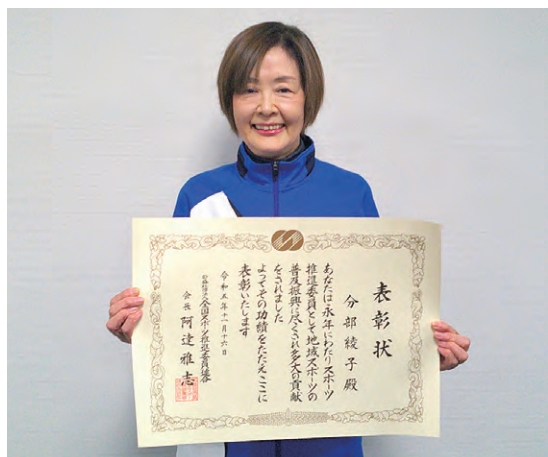 表彰状
分部綾子殿
あなたは永年にわたりスポーツ
推進委員として地域スポーツの
普及振興に尽くされ多大の貢献
をされました
よってその功績をたたえここに
表彰いたします
令和五年十一月十六日
公益社団法人全国スポーツ推進委員連合
会長 阿達雅志